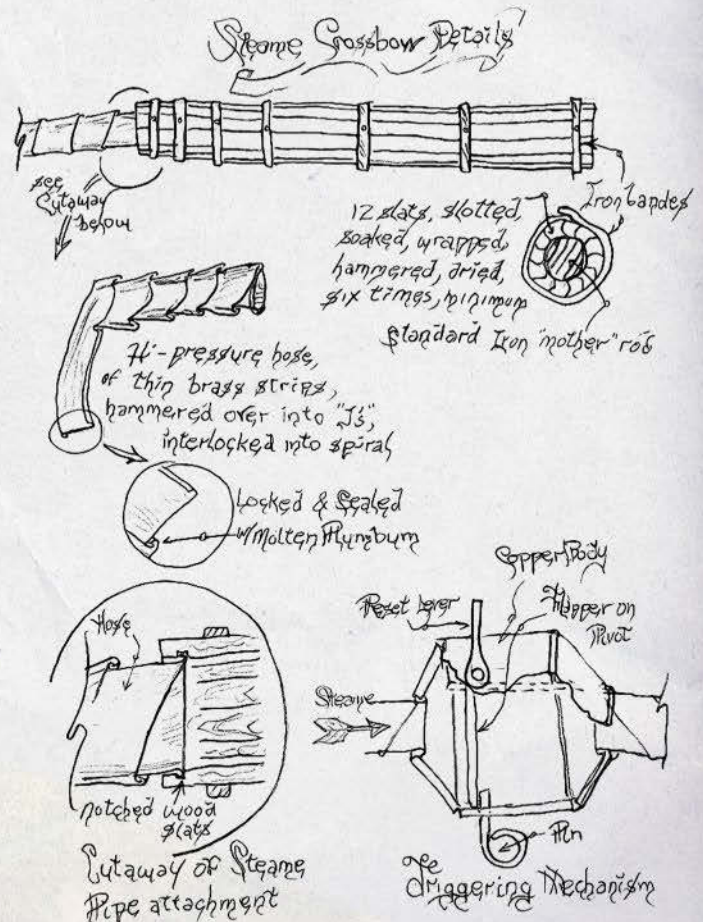 Steame Crossbow Details
see
Cutaway
below
Iron bandes
12 slats, slotted,
soaked, wrapped,
hammered, dried,
six times, minimum
Standard Iron "mother" rod
Hi-pressure hose,
of thin brass strips,
hammered over into "J's",
interlocked into spiral
Locked & Sealed
w/Molten Plumbum
Hose
notched wood
slats
Cutaway of Steame
Pipe attachment
Copper Body
Reset lever
Flapper on
Pivot
Steame
Pin
Ye
Triggering Mechanism